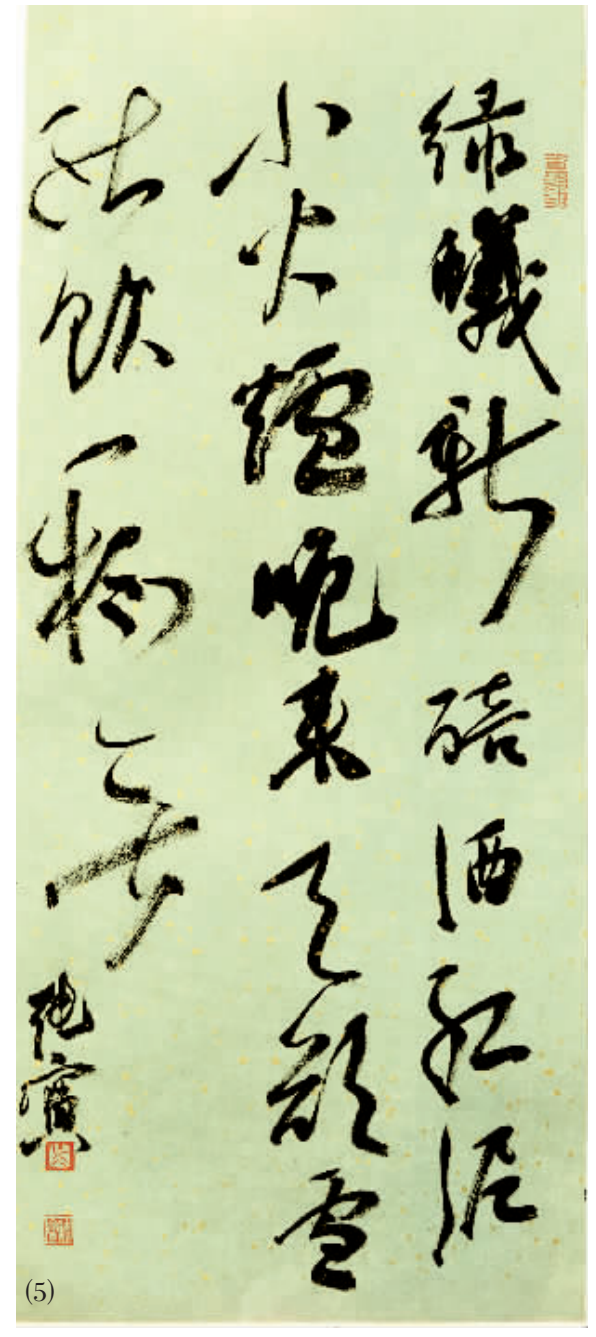 緑蟻新醅酒紅泥
小火爐晚來天欲雪
能飲一杯無
(5)